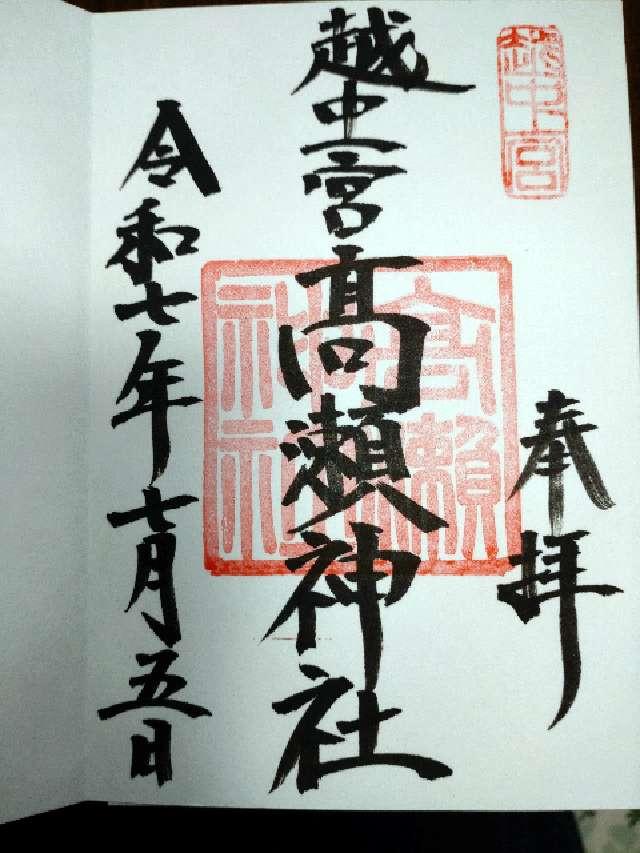 越中宮
奉拝
越中一宮高瀬神社
高瀬神社
令和七年七月五日